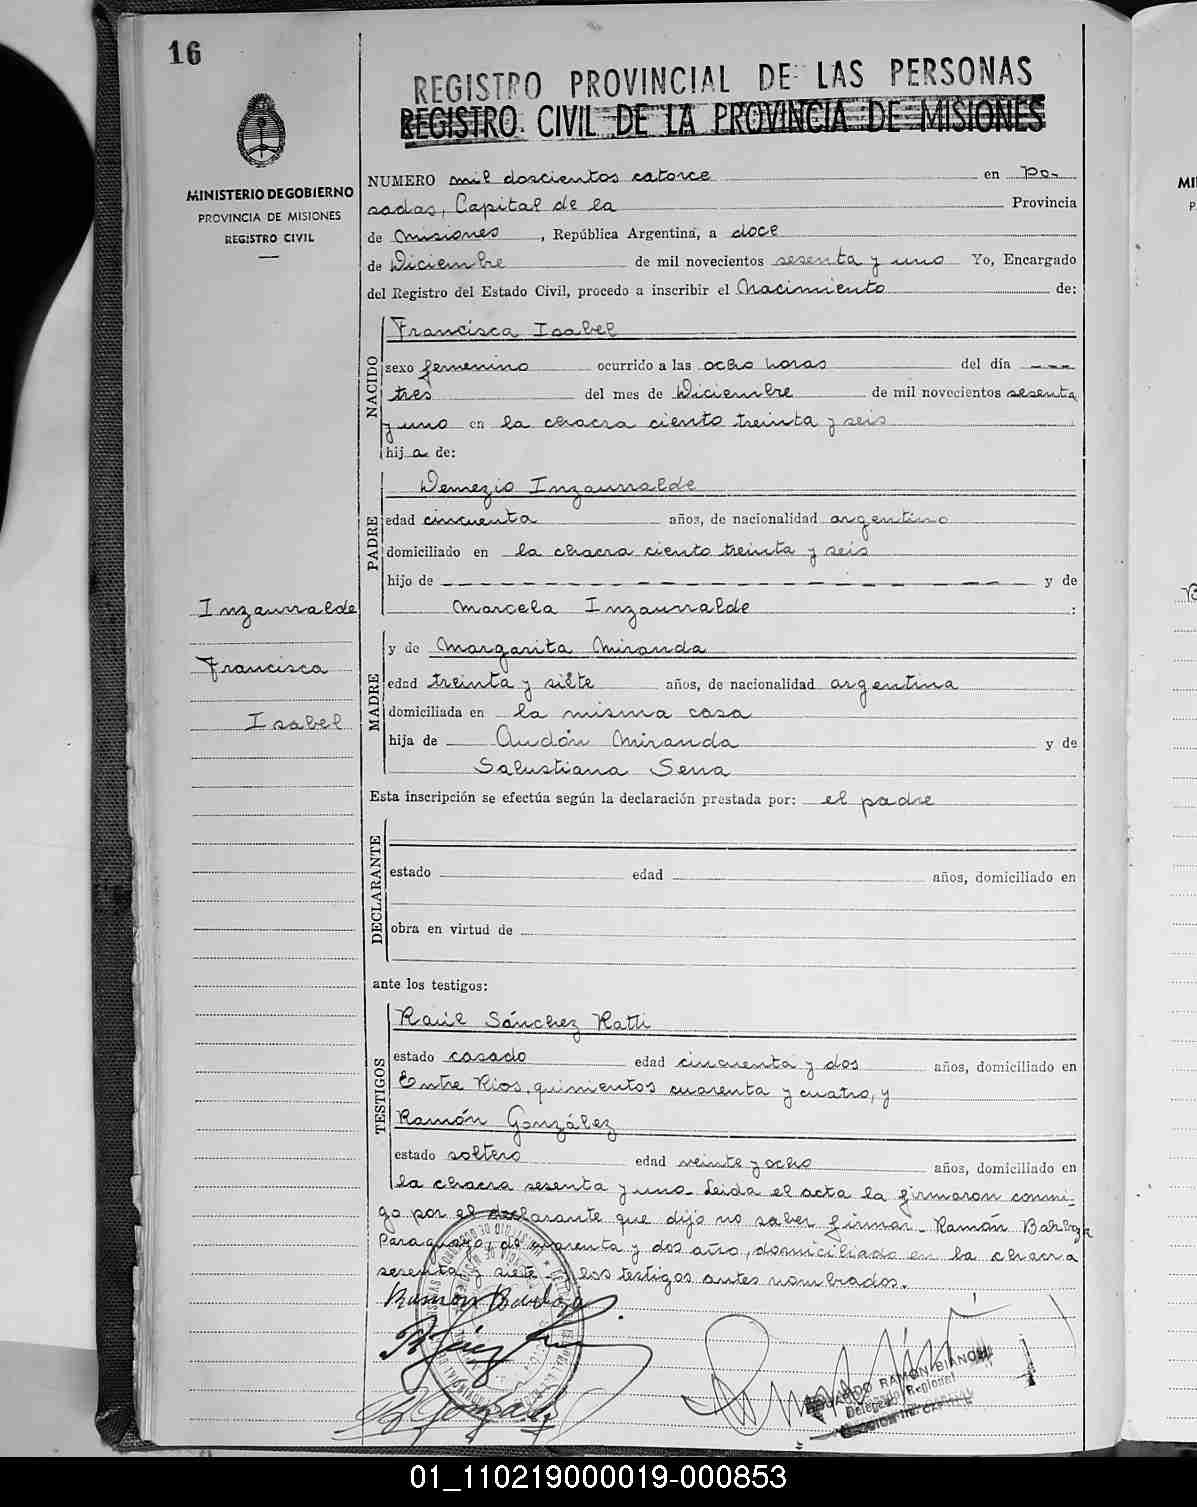 16
REGISTRO PROVINCIAL DE LAS PERSONAS
REGISTRO CIVIL DE LA PROVINCIA DE MISIONES
MINISTERIO DE GOBIERNO
PROVINCIA DE MISIONES
REGISTRO CIVIL
NUMERO mil doscientos catorce en Po-
sadas, Capital de la Provincia
de Misiones, República Argentina, a doce
de Diciembre de mil novecientos sesenta y uno Yo, Encargado
del Registro del Estado Civil, procedo a inscribir el Nacimiento de:
NACIDO
Francisca Isabel
sexo femenino ocurrido a las ocho horas del día ---
tres del mes de Diciembre de mil novecientos sesenta
y uno en la chacra ciento treinta y seis
hij a de:
PADRE
Demezio Inzaurralde
edad cincuenta años, de nacionalidad argentino
domiciliado en la chacra ciento treinta y seis
hijo de - - - - - - - - - - - - - - - - - - - y de
Marcela Inzaurralde :
Inzaurralde
Francisca
Isabel
MADRE
y de Margarita Miranda
edad treinta y siete años, de nacionalidad argentina
domiciliada en la misma casa
hija de Audón Miranda y de
Salustiana Sena
Esta inscripción se efectúa según la declaración prestada por: el padre
DECLARANTE
estado edad años, domiciliado en
obra en virtud de
ante los testigos:
TESTIGOS
Raúl Sánchez Ratti
estado casado edad cincuenta y dos años, domiciliado en
Entre Rios, quinientos cuarenta y cuatro, y
Ramón González
estado soltero edad veinte y ocho años, domiciliado en
la chacra sesenta y uno. Leida el acta la firmaron conmi-
go por el declarante que dijo no saber firmar. Ramón Barboza
Paraguayo, de cuarenta y dos año, domiciliado en la chacra
sesenta y siete y los testigos antes nombrados.
Ramon Barboza
R González
EDUARDO RAMON BIANCHI
Delegado Regional
01_110219000019-000853